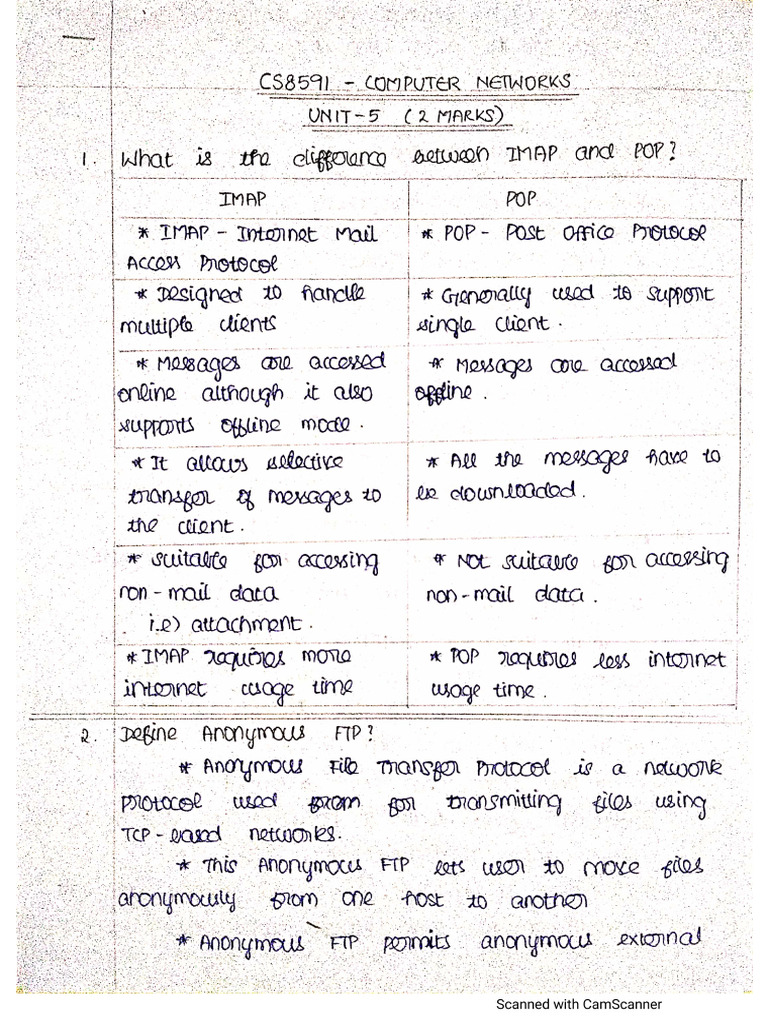 CS8591 - COMPUTER NETWORKS
UNIT-5 (2 MARKS)
1. What is the difference between IMAP and POP?
IMAP POP
* IMAP - Internet Mail * POP - Post Office Protocol
Access Protocol
* Designed to handle * Generally used to support
multiple clients single client.
* Messages are accessed * Messages are accessed
online although it also offline.
supports offline mode.
* It allows selective * All the messages have to
transfer of messages to be downloaded.
the client.
* Suitable for accessing * Not suitable for accessing
non-mail data non-mail data.
i.e) attachment.
* IMAP requires more * POP requires less internet
internet usage time usage time.
2. Define Anonymous FTP?
* Anonymous File Transfer Protocol is a network
protocol used from for transmitting files using
TCP-based networks.
* This Anonymous FTP lets user to move files
anonymously from one host to another
* Anonymous FTP permits anonymous external
Scanned with CamScanner